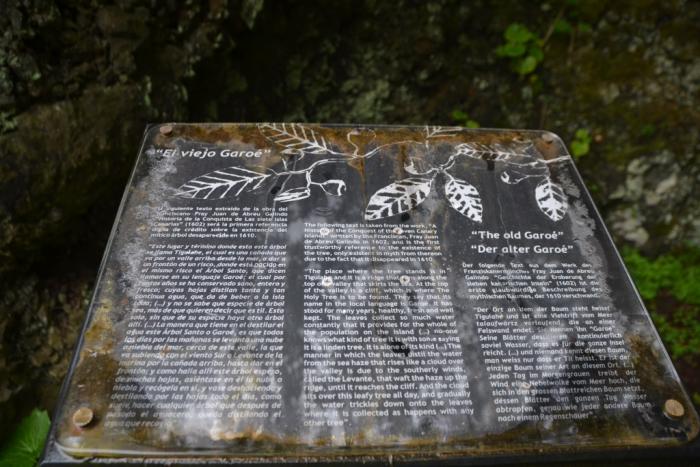 "El viejo Garoé"
siguiente texto extraído de la obra del
franciscano Fray Juan de Abreu Galindo
"Historia de la Conquista de Las siete islas
Canarias" (1602) será la primera referencia
digna de crédito sobre la existencia del
mítico árbol desaparecido en 1610.
"Este lugar y término donde está este árbol
se llama Tigulahe, el cual es una cañada que
va por un valle arriba desde la mar, a dar a
un frontón de un risco, donde está nacido en
el mismo risco el Árbol Santo, que dicen
llamarse en su lenguaje Garoé; el cual por
tantos años se ha conservado sano, entero y
fresco; cuyas hojas distilan tanta y tan
continua agua, que da de beber a la isla
toda, (...) y no se sabe qué especie de árbol
sea, más de que quieren decir que es til. Está
solo, sin que de su especie haya otro árbol
allí. (...) La manera que tiene en el destilar el
agua este Árbol Santo o Garoé, es que todos
los días por las mañanas se levanta una nube
niebla del mar, cerca de este valle, la que
va subiendo con el viento Sur o Levante de la
marina por la cañada arriba, hasta dar en el
frontón; y como halla allí este árbol espeso,
de muchas hojas, asiéntase en él la nube o
niebla y recógela en sí, y vase deshaciendo y
destilando por las hojas todo el día, como
suele hacer cualquier árbol que después de
pasado el aguacero, queda distilando el
agua que recogió".
The following text is taken from the work, "A
History of the Conquest of the Seven Canary
Islands" written by the Franciscan, Fray Juan
de Abreu Galindo in 1602, and is the first
trustworthy reference to the existence of
the tree, only existent in myth from thereon
due to the fact that it disappeared in 1610.
"The place where the tree stands is in
Tigulahe and it is a ridge that runs along the
top of a valley that skirts the sea. At the top
of the valley is a cliff, which is where The
Holy Tree is to be found. They say that its
name in the local language is Garoé. It has
stood for many years, healthy, firm and well
kept. The leaves collect so much water
constantly that it provides for the whole of
the population on the island (...) no-one
knows what kind of tree it is with some saying
it is a linden tree. It is alone of its kind (...) The
manner in which the leaves distil the water
from the sea haze that rises like a cloud over
the valley is due to the southerly winds,
called the Levante, that waft the haze up the
ridge, until it reaches the cliff. And the cloud
sits over this leafy tree all day, and gradually
the water trickles down onto the leaves
where it is collected as happens with any
other tree".
"The old Garoé"
"Der alter Garoé"
Der folgende Text aus dem Werk des
Franziskanermönches Fray Juan de Abreu
Galindo "Geschichte der Eroberung der
sieben kanarischen Inseln" (1602) ist die
erste glaubwürdige Beschreibung des
mythischen Baumes, der 1610 verschwand.
"Der Ort an dem der Baum steht heisst
Tigulahe und ist eine Viehtrift vom Meer
talaufwärts verlaufend, die an einer
Felswand endet. Sie nennen ihn "Garoe".
Seine Blätter destilieren kontinuierlich
soviel Wasser, dass es für die ganze Insel
reicht. (...) und niemand kennt diesen Baum,
man weiss nur dass er Til heisst. Er ist der
einzige Baum seiner Art an diesem Ort. (...)
Jeden Tag im Morgengrauen treibt der
Wind eine Nebelwolke vom Meer hoch, die
sich in den grossen Blattreichen Baum setzt
dessen Blätter den ganzen Tag Wasser
abtropfen, genau wie jeder andere Baum
nach einem Regenschauer".